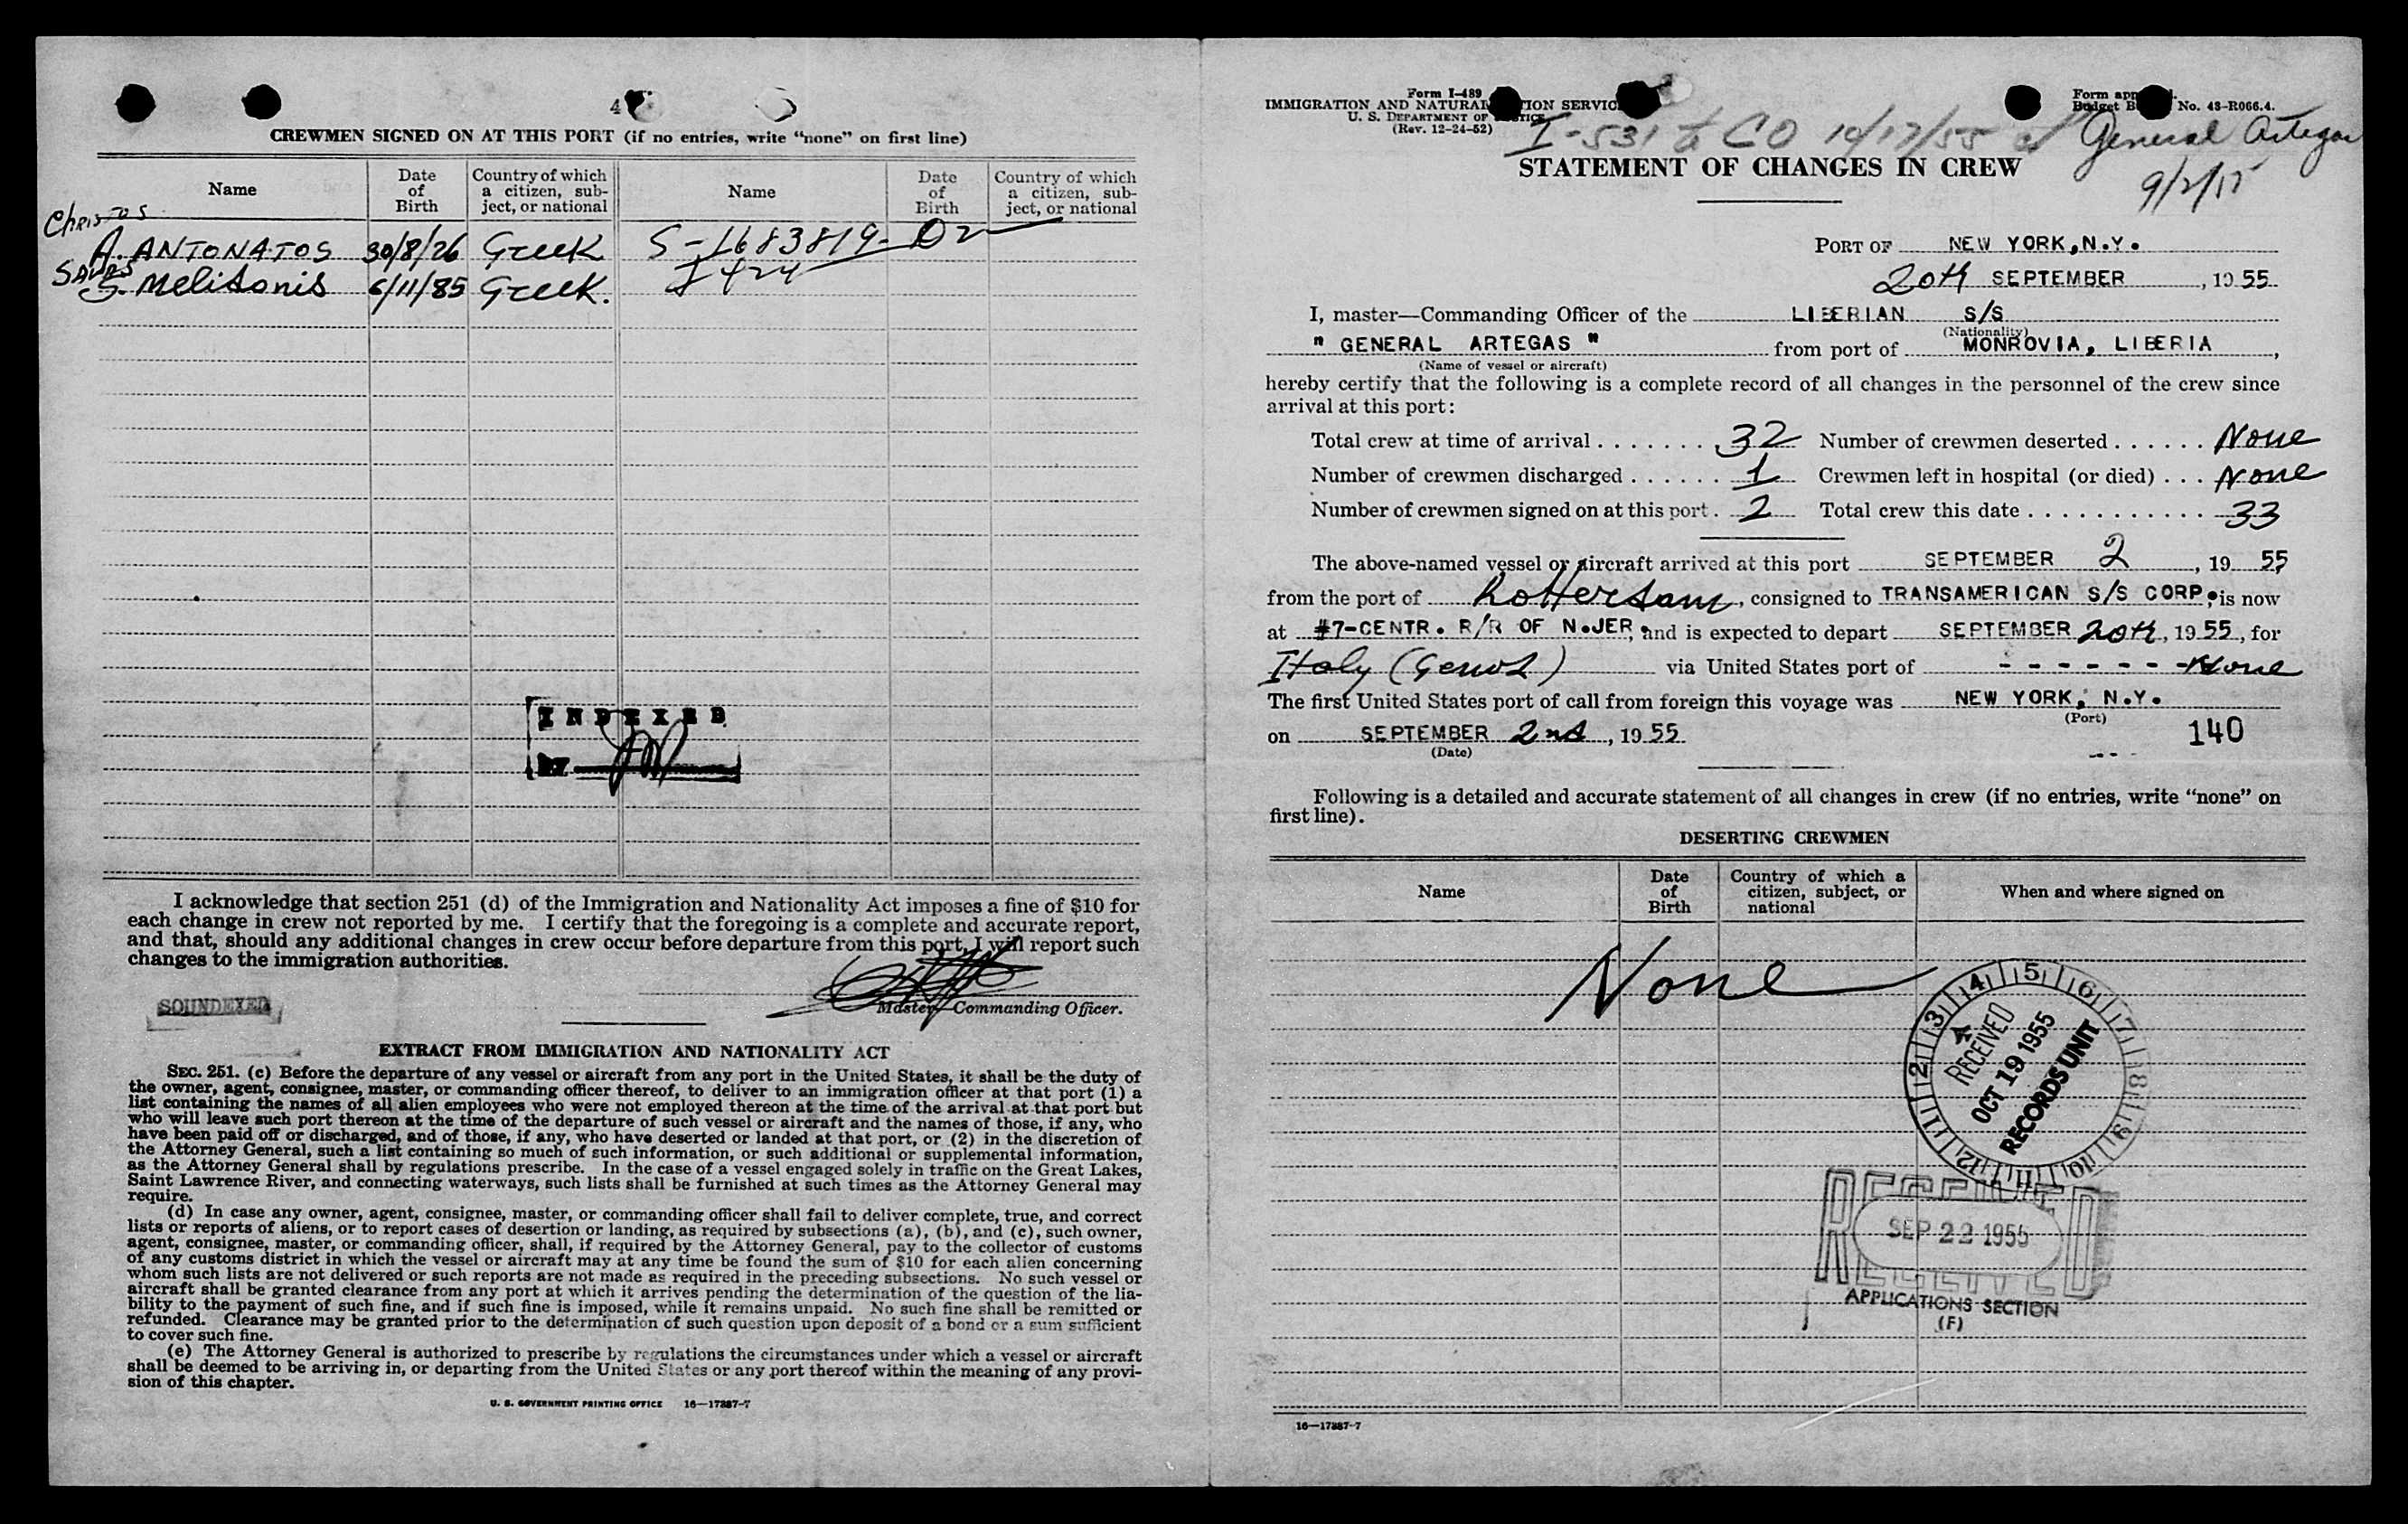 4
CREWMEN SIGNED ON AT THIS PORT (if no entries, write “none” on first line)
Name
Date of Birth
Country of which a citizen, subject, or national
Name
Date of Birth
Country of which a citizen, subject, or national
Christos
A. ANTONATOS 30/8/26 Greek S-1683819- D2
SAVAS I 424
S. Melidonis 6/11/85 Greek.
INDEXED
BY
I acknowledge that section 251 (d) of the Immigration and Nationality Act imposes a fine of $10 for
each change in crew not reported by me. I certify that the foregoing is a complete and accurate report,
and that, should any additional changes in crew occur before departure from this port, I will report such
changes to the immigration authorities.
SOUNDEXED
Master—Commanding Officer.
EXTRACT FROM IMMIGRATION AND NATIONALITY ACT
SEC. 251. (c) Before the departure of any vessel or aircraft from any port in the United States, it shall be the duty of
the owner, agent, consignee, master, or commanding officer thereof, to deliver to an immigration officer at that port (1) a
list containing the names of all alien employees who were not employed thereon at the time of the arrival at that port but
who will leave such port thereon at the time of the departure of such vessel or aircraft and the names of those, if any, who
have been paid off or discharged, and of those, if any, who have deserted or landed at that port, or (2) in the discretion of
the Attorney General, such a list containing so much of such information, or such additional or supplemental information,
as the Attorney General shall by regulations prescribe. In the case of a vessel engaged solely in traffic on the Great Lakes,
Saint Lawrence River, and connecting waterways, such lists shall be furnished at such times as the Attorney General may
require.
(d) In case any owner, agent, consignee, master, or commanding officer shall fail to deliver complete, true, and correct
lists or reports of aliens, or to report cases of desertion or landing, as required by subsections (a), (b), and (c), such owner,
agent, consignee, master, or commanding officer, shall, if required by the Attorney General, pay to the collector of customs
of any customs district in which the vessel or aircraft may at any time be found the sum of $10 for each alien concerning
whom such lists are not delivered or such reports are not made as required in the preceding subsections. No such vessel or
aircraft shall be granted clearance from any port at which it arrives pending the determination of the question of the lia-
bility to the payment of such fine, and if such fine is imposed, while it remains unpaid. No such fine shall be remitted or
refunded. Clearance may be granted prior to the determination of such question upon deposit of a bond or a sum sufficient
to cover such fine.
(e) The Attorney General is authorized to prescribe by regulations the circumstances under which a vessel or aircraft
shall be deemed to be arriving in, or departing from the United States or any port thereof within the meaning of any provi-
sion of this chapter.
U. S. GOVERNMENT PRINTING OFFICE 16—17387-7
Form I-489
IMMIGRATION AND NATURAL TION SERVIC
U. S. DEPARTMENT OF STICE
(Rev. 12-24-52)
Form app
Budget B No. 43-R066.4.
I-531 to CO 10/17/55
General Artegas
9/2/55
STATEMENT OF CHANGES IN CREW
PORT OF NEW YORK, N.Y.
20th SEPTEMBER, 1955
I, master—Commanding Officer of the LIBERIAN S/S
(Nationality)
" GENERAL ARTEGAS " from port of MONROVIA, LIBERIA,
(Name of vessel or aircraft)
hereby certify that the following is a complete record of all changes in the personnel of the crew since
arrival at this port:
Total crew at time of arrival . . . . . . . 32 Number of crewmen deserted . . . . . . None
Number of crewmen discharged . . . . . . 1 Crewmen left in hospital (or died) . . . None
Number of crewmen signed on at this port . 2 Total crew this date . . . . . . . . . . . 33
The above-named vessel or aircraft arrived at this port SEPTEMBER 2, 1955
from the port of Rotterdam, consigned to TRANSAMERICAN S/S CORP. is now
at #7-CENTR. R/R OF N.JER. and is expected to depart SEPTEMBER 20th, 1955, for
Italy (Genoa) via United States port of - - - - - - - None
The first United States port of call from foreign this voyage was NEW YORK, N.Y.
(Port)
on SEPTEMBER 2nd, 1955
(Date)
140
Following is a detailed and accurate statement of all changes in crew (if no entries, write “none” on
first line).
DESERTING CREWMEN
Name
Date of Birth
Country of which a citizen, subject, or national
When and where signed on
None
1 2 3 4 5 6 7 8 9 10 11 12
RECEIVED
OCT 19 1955
RECORDS UNIT
RECEIVED
SEP 22 1955
RECEIVED
APPLICATIONS SECTION
(F)
16—17387-7